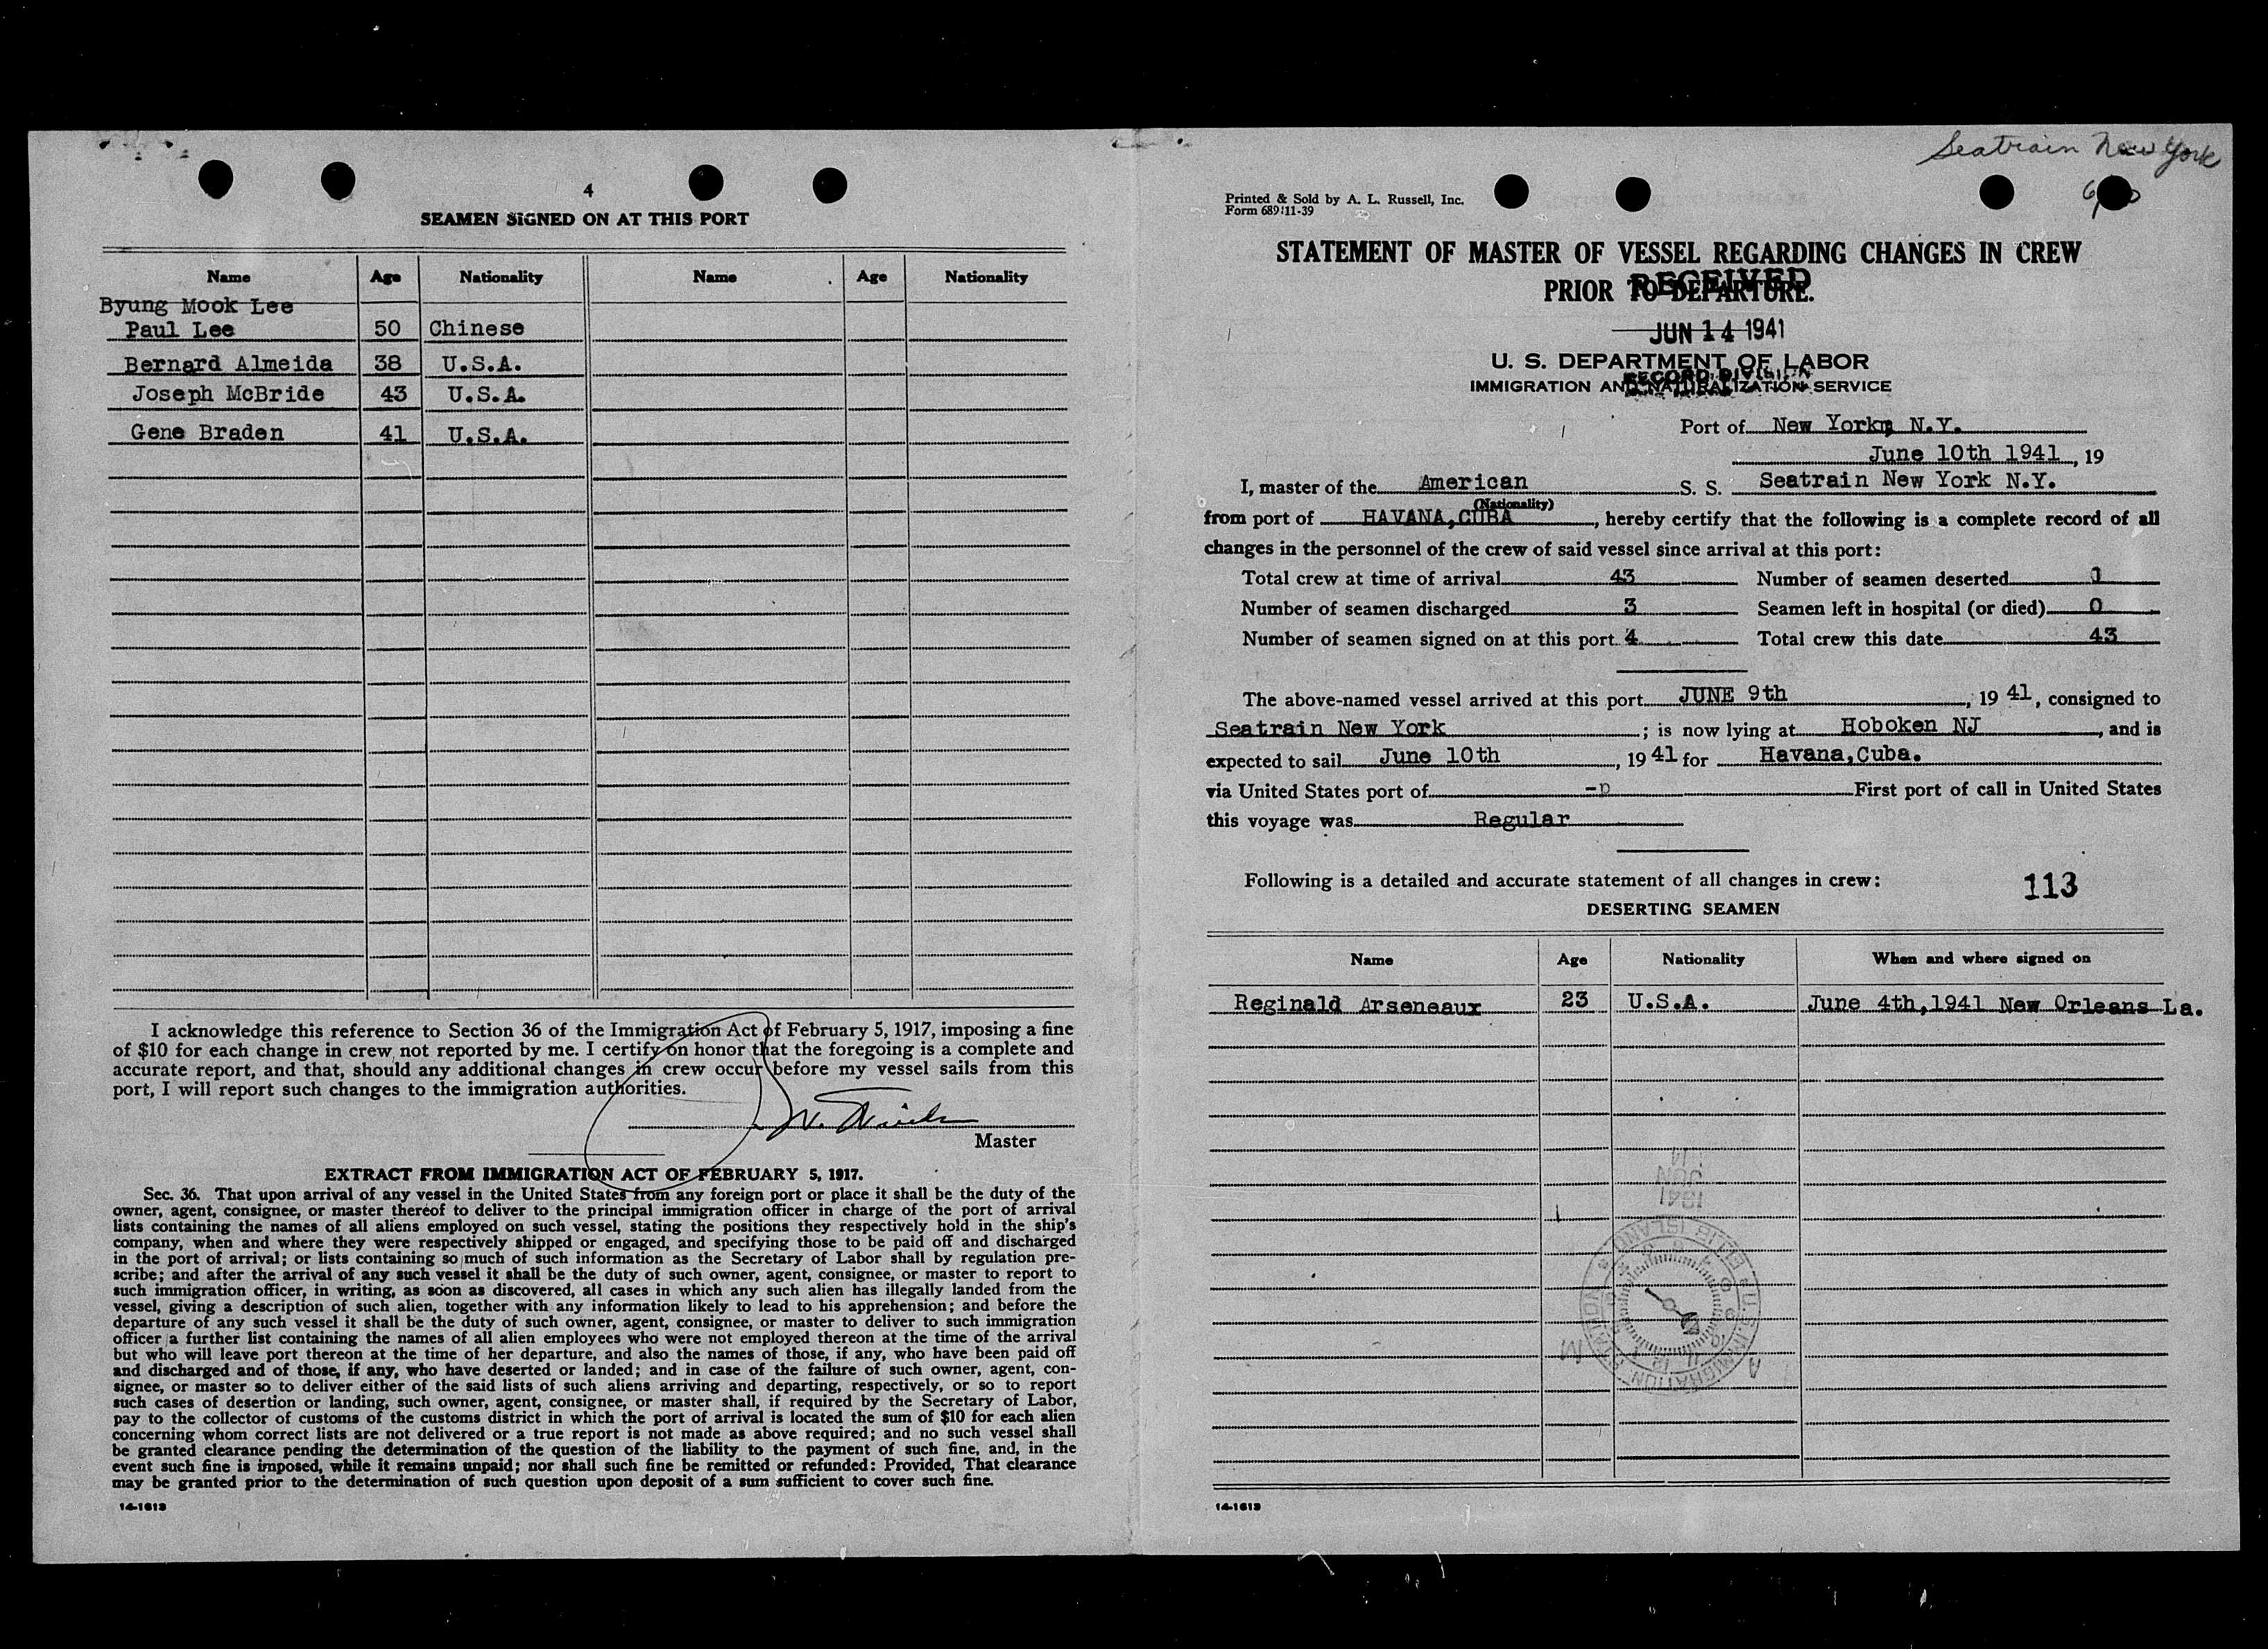 4
SEAMEN SIGNED ON AT THIS PORT
Name Age Nationality Name Age Nationality
Byung Mook Lee
Paul Lee 50 Chinese
Bernard Almeida 38 U.S.A.
Joseph McBride 43 U.S.A.
Gene Braden 41 U.S.A.
I acknowledge this reference to Section 36 of the Immigration Act of February 5, 1917, imposing a fine
of $10 for each change in crew not reported by me. I certify on honor that the foregoing is a complete and
accurate report, and that, should any additional changes in crew occur before my vessel sails from this
port, I will report such changes to the immigration authorities.
Master
EXTRACT FROM IMMIGRATION ACT OF FEBRUARY 5, 1917.
Sec. 36. That upon arrival of any vessel in the United States from any foreign port or place it shall be the duty of the
owner, agent, consignee, or master thereof to deliver to the principal immigration officer in charge of the port of arrival
lists containing the names of all aliens employed on such vessel, stating the positions they respectively hold in the ship's
company, when and where they were respectively shipped or engaged, and specifying those to be paid off and discharged
in the port of arrival; or lists containing so much of such information as the Secretary of Labor shall by regulation pre-
scribe; and after the arrival of any such vessel it shall be the duty of such owner, agent, consignee, or master to report to
such immigration officer, in writing, as soon as discovered, all cases in which any such alien has illegally landed from the
vessel, giving a description of such alien, together with any information likely to lead to his apprehension; and before the
departure of any such vessel it shall be the duty of such owner, agent, consignee, or master to deliver to such immigration
officer a further list containing the names of all alien employees who were not employed thereon at the time of the arrival
but who will leave port thereon at the time of her departure, and also the names of those, if any, who have been paid off
and discharged and of those, if any, who have deserted or landed; and in case of the failure of such owner, agent, con-
signee, or master so to deliver either of the said lists of such aliens arriving and departing, respectively, or so to report
such cases of desertion or landing, such owner, agent, consignee, or master shall, if required by the Secretary of Labor,
pay to the collector of customs of the customs district in which the port of arrival is located the sum of $10 for each alien
concerning whom correct lists are not delivered or a true report is not made as above required; and no such vessel shall
be granted clearance pending the determination of the question of the liability to the payment of such fine, and, in the
event such fine is imposed, while it remains unpaid; nor shall such fine be remitted or refunded: Provided, That clearance
may be granted prior to the determination of such question upon deposit of a sum sufficient to cover such fine.
14-1613
Seatrain New York
Printed & Sold by A. L. Russell, Inc.
Form 689 11-39
STATEMENT OF MASTER OF VESSEL REGARDING CHANGES IN CREW
PRIOR TO DEPARTURE.
RECEIVED
JUN 14 1941
U. S. DEPARTMENT OF LABOR
RECORD DIVISION
IMMIGRATION AND NATURALIZATION SERVICE
Port of New York, N.Y.
June 10th 1941, 19
I, master of the American S. S. Seatrain New York N.Y.
(Nationality)
from port of HAVANA,CUBA, hereby certify that the following is a complete record of all
changes in the personnel of the crew of said vessel since arrival at this port:
Total crew at time of arrival 43 Number of seamen deserted 1
Number of seamen discharged 3 Seamen left in hospital (or died) 0
Number of seamen signed on at this port 4 Total crew this date 43
The above-named vessel arrived at this port JUNE 9th, 19 41, consigned to
Seatrain New York; is now lying at Hoboken NJ, and is
expected to sail June 10th, 19 41 for Havana,Cuba.
via United States port of First port of call in United States
this voyage was Regular
Following is a detailed and accurate statement of all changes in crew: 113
DESERTING SEAMEN
Name Age Nationality When and where signed on
Reginald Arseneaux 23 U.S.A. June 4th,1941 New Orleans La.
14
JUN
1941
U.S. IMMIGRATION
ELLIS ISLAND
14-1613